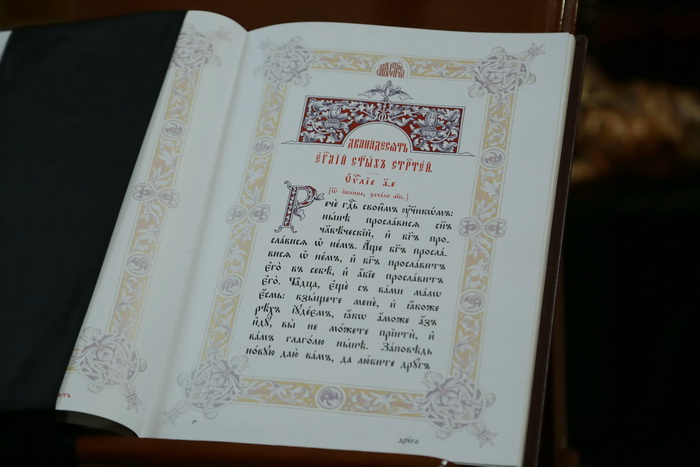 Двана́десѧть
Є҆ѵⷢ҇лїй ст҃ы́хъ стрⷭ҇те́й.
Є҆ѵⷢ҇лїе а҃-е
[Ѿ і҆ѡа́нна, зача́ло м҃ѕ.]
Речѐ гдⷭ҇ь свои̑мъ ᲂу҆чн҃кѡ́мъ:
ны́нѣ просла́висѧ сн҃ъ
чл҃вѣ́ческїй, и҆ бг҃ъ про-
сла́висѧ ѡ҆ не́мъ. А҆́ще бг҃ъ просла́-
висѧ ѡ҆ не́мъ, и҆ бг҃ъ просла́витъ
є҆го̀ въ себѣ̀, и҆ а҆́бїе просла́витъ
є҆го̀. Ча̑дца, є҆щѐ съ ва́ми ма́лѡ
є҆́смь: взы́щете менѐ, и҆ ꙗ҆́коже
рѣ́хъ і҆ꙋде́ѡмъ, ꙗ҆́кѡ а҆́може а҆́зъ
и҆дꙋ̀, вы̀ не мо́жете прїитѝ, и҆
ва́мъ глаго́лю ны́нѣ. За́повѣдь
но́вꙋю даю̀ ва́мъ, да лю́бите дрꙋ́гъ
дрꙋ́га